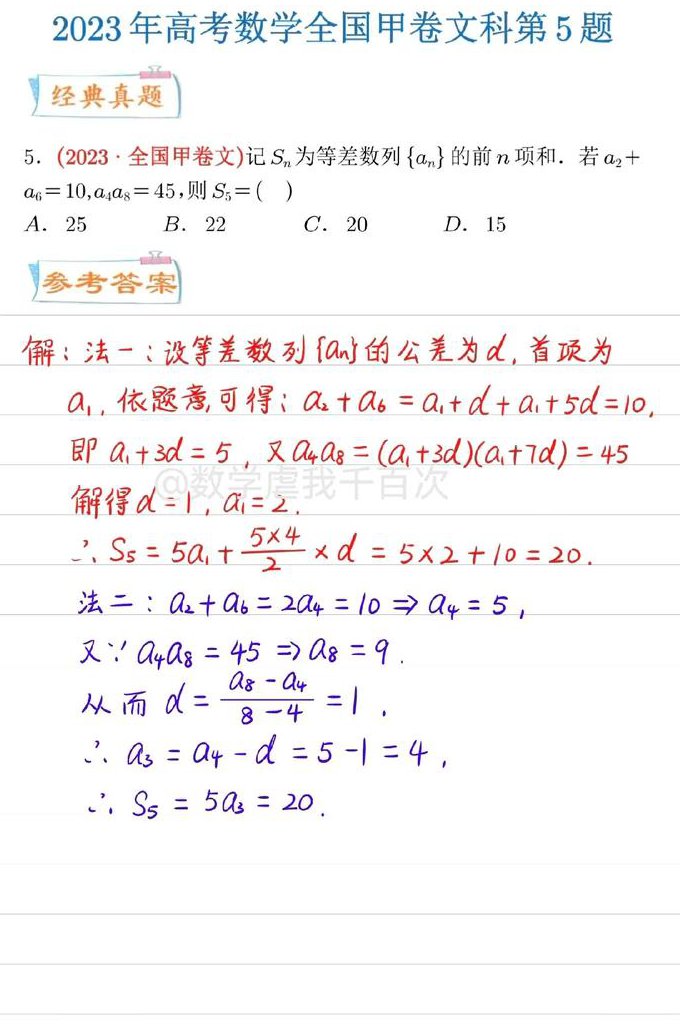 2023年高考数学全国甲卷文科第5题
经典真题
5. (2023·全国甲卷文)记Sₙ为等差数列{aₙ}的前n项和. 若a₂+
a₆=10,a₄a₈=45,则S₅=( )
A. 25 B. 22 C. 20 D. 15
参考答案
解:法一:设等差数列{aₙ}的公差为d,首项为
a₁,依题意可得:a₂+a₆=a₁+d+a₁+5d=10,
即a₁+3d=5,又a₄a₈=(a₁+3d)(a₁+7d)=45
@数学虐我千百次
解得d=1,a₁=2.
∴S₅=5a₁+5×4/2×d=5×2+10=20.
法二:a₂+a₆=2a₄=10⇒a₄=5,
又∵a₄a₈=45⇒a₈=9.
从而d=a₈-a₄/8-4=1,
∴a₃=a₄-d=5-1=4,
∴S₅=5a₃=20.